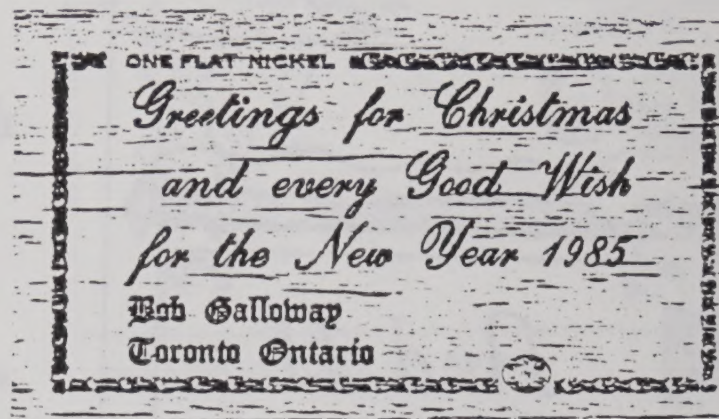 ONE FLAT NICKEL
Greetings for Christmas
and every Good Wish
for the New Year 1985
Bob Galloway
Toronto Ontario